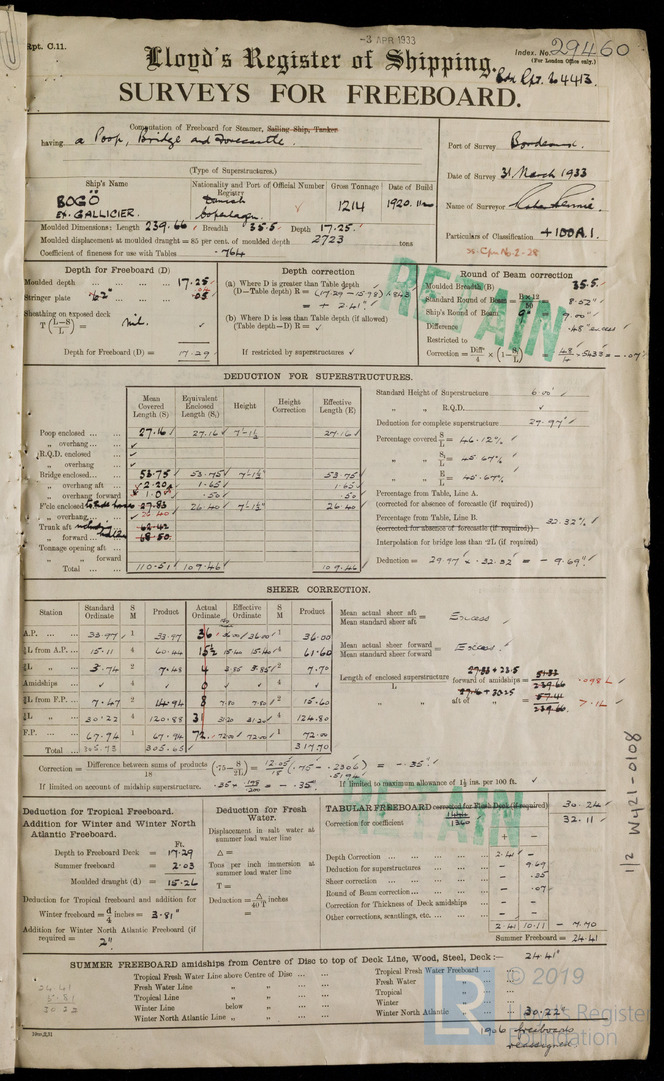 -3 APR 1933
Rpt. C.11.
Lloyd's Register of Shipping.
Index. No. 29460
(For London Office only.)
SURVEYS FOR FREEBOARD.
Computation of Freeboard for Steamer, Sailing Ship, Tanker
having a Poop, Bridge and Forecastle.
(Type of Superstructures.)
Port of Survey Bordeaux.
Date of Survey 31 March 1933
Name of Surveyor
Particulars of Classification +100A.1.
Ship's Name
Nationality and Port of Registry
Official Number
Gross Tonnage
Date of Build
BOGÖ
ex. GALLICIER.
Danish
Copenhagen
1214
1920. 11
Moulded Dimensions: Length 239.66 Breadth 35.5 Depth 17.25
Moulded displacement at moulded draught = 85 per cent. of moulded depth 2723 tons
Coefficient of fineness for use with Tables .764
RETAIN
Depth for Freeboard (D)
Moulded depth 17.25
Stringer plate .62" .05
Sheathing on exposed deck
T (L-S/L) = nil.
Depth for Freeboard (D) = 17.29
Depth correction
(a) Where D is greater than Table depth
(D-Table depth) R = (17.29 - 15.98) 1.843
= + 2.41"
(b) Where D is less than Table depth (if allowed)
(Table depth-D) R =
If restricted by superstructures
Round of Beam correction
Moulded Breadth (B) 35.5
Standard Round of Beam = B×12/50 8.52"
Ship's Round of Beam 9" = 9.00"
Difference .48" excess
Restricted to
Correction = Diff/4 × (1-S/L) = .48/4 × .5433 = -.07
DEDUCTION FOR SUPERSTRUCTURES.
Mean Covered Length (S)
Equivalent Enclosed Length (S₁)
Height
Height Correction
Effective Length (E)
Poop enclosed 27.16 27.16 7'-1½ 27.16
„ overhang
R.Q.D. enclosed
„ overhang
Bridge enclosed 53.75 53.75 7'-1½" 53.75
„ overhang aft 2.20 1.65 1.65
„ overhang forward 1.0 .50 .50
F'cle enclosed 27.83 26.40 7'-1½" 26.40
„ overhang 26.40
Trunk aft 62.42
„ forward 68.50
Tonnage opening aft
„ „ forward
Total 110.51 109.46 109.46
Standard Height of Superstructure 6.00'
„ „ R.Q.D.
Deduction for complete superstructure 29.97"
Percentage covered S/L = 46.12%
„ „ S₁/L = 45.67%
„ „ E/L = 45.67%
Percentage from Table, Line A.
(corrected for absence of forecastle (if required))
Percentage from Table, Line B. 32.32%
(corrected for absence of forecastle (if required))
Interpolation for bridge less than ·2L (if required)
Deduction = 29.97 × .32.32 = - 9.69"
SHEER CORRECTION.
Station
Standard Ordinate
S M
Product
Actual Ordinate
Effective Ordinate
S M
Product
A.P. 33.97 1 33.97 36 36.00 36.00 1 36.00
⅙L from A.P. 15.11 4 60.44 15½ 15.40 15.40 4 61.60
⅓L „ 3.74 2 7.48 4 3.85 3.85 2 7.70
Amidships 4 0 4
⅓L from F.P. 7.47 2 14.94 8 7.80 7.80 2 15.60
⅙L „ 30.22 4 120.88 31 31.20 31.20 4 124.80
F.P. 67.94 1 67.94 72 72.00 72.00 1 72.00
Total 305.65 317.70
Mean actual sheer aft / Mean standard sheer aft = Excess
Mean actual sheer forward / Mean standard sheer forward = Excess
Length of enclosed superstructure / L forward of amidships = 27.83 + 23.5 / 239.66
„ „ aft of „ = 27.16 + 30.25 / 239.66
Correction = Difference between sums of products / 18 (·75 - S/2L) = 12.05/18 (.75 - .2306) = -.35"
If limited on account of midship superstructure.
If limited to maximum allowance of 1½ ins. per 100 ft.
Deduction for Tropical Freeboard.
Addition for Winter and Winter North Atlantic Freeboard.
Ft.
Depth to Freeboard Deck = 17.29
Summer freeboard = 2.03
Moulded draught (d) = 15.26
Deduction for Tropical freeboard and addition for
Winter freeboard = d/4 inches = 3.81"
Addition for Winter North Atlantic Freeboard (if required) = 2"
Deduction for Fresh Water.
Displacement in salt water at summer load water line
Δ =
Tons per inch immersion at summer load water line
T =
Deduction = Δ/40 T inches
=
TABULAR FREEBOARD corrected for Flush Deck (if required) 30.24
Correction for coefficient 1444/1360 32.11
+ -
Depth Correction 2.41 -
Deduction for superstructures - 9.69
Sheer correction - .35
Round of Beam correction - .07
Correction for Thickness of Deck amidships - -
Other corrections, scantlings, etc. - -
2.41 10.11 - 7.70
Summer Freeboard = 24.41
SUMMER FREEBOARD amidships from Centre of Disc to top of Deck Line, Wood, Steel, Deck:— 24.41"
Tropical Fresh Water Line above Centre of Disc
Fresh Water Line „ „
Tropical Line „ „
Winter Line below „
Winter North Atlantic Line „ „
Tropical Fresh Water Freeboard
Fresh Water „
Tropical „
Winter „
Winter North Atlantic „ 30.22"
24.41
5.81
30.22
1906 freeboards
reassigned.
112 W421-0108
© 2019
LR
Lloyd's Register
Foundation